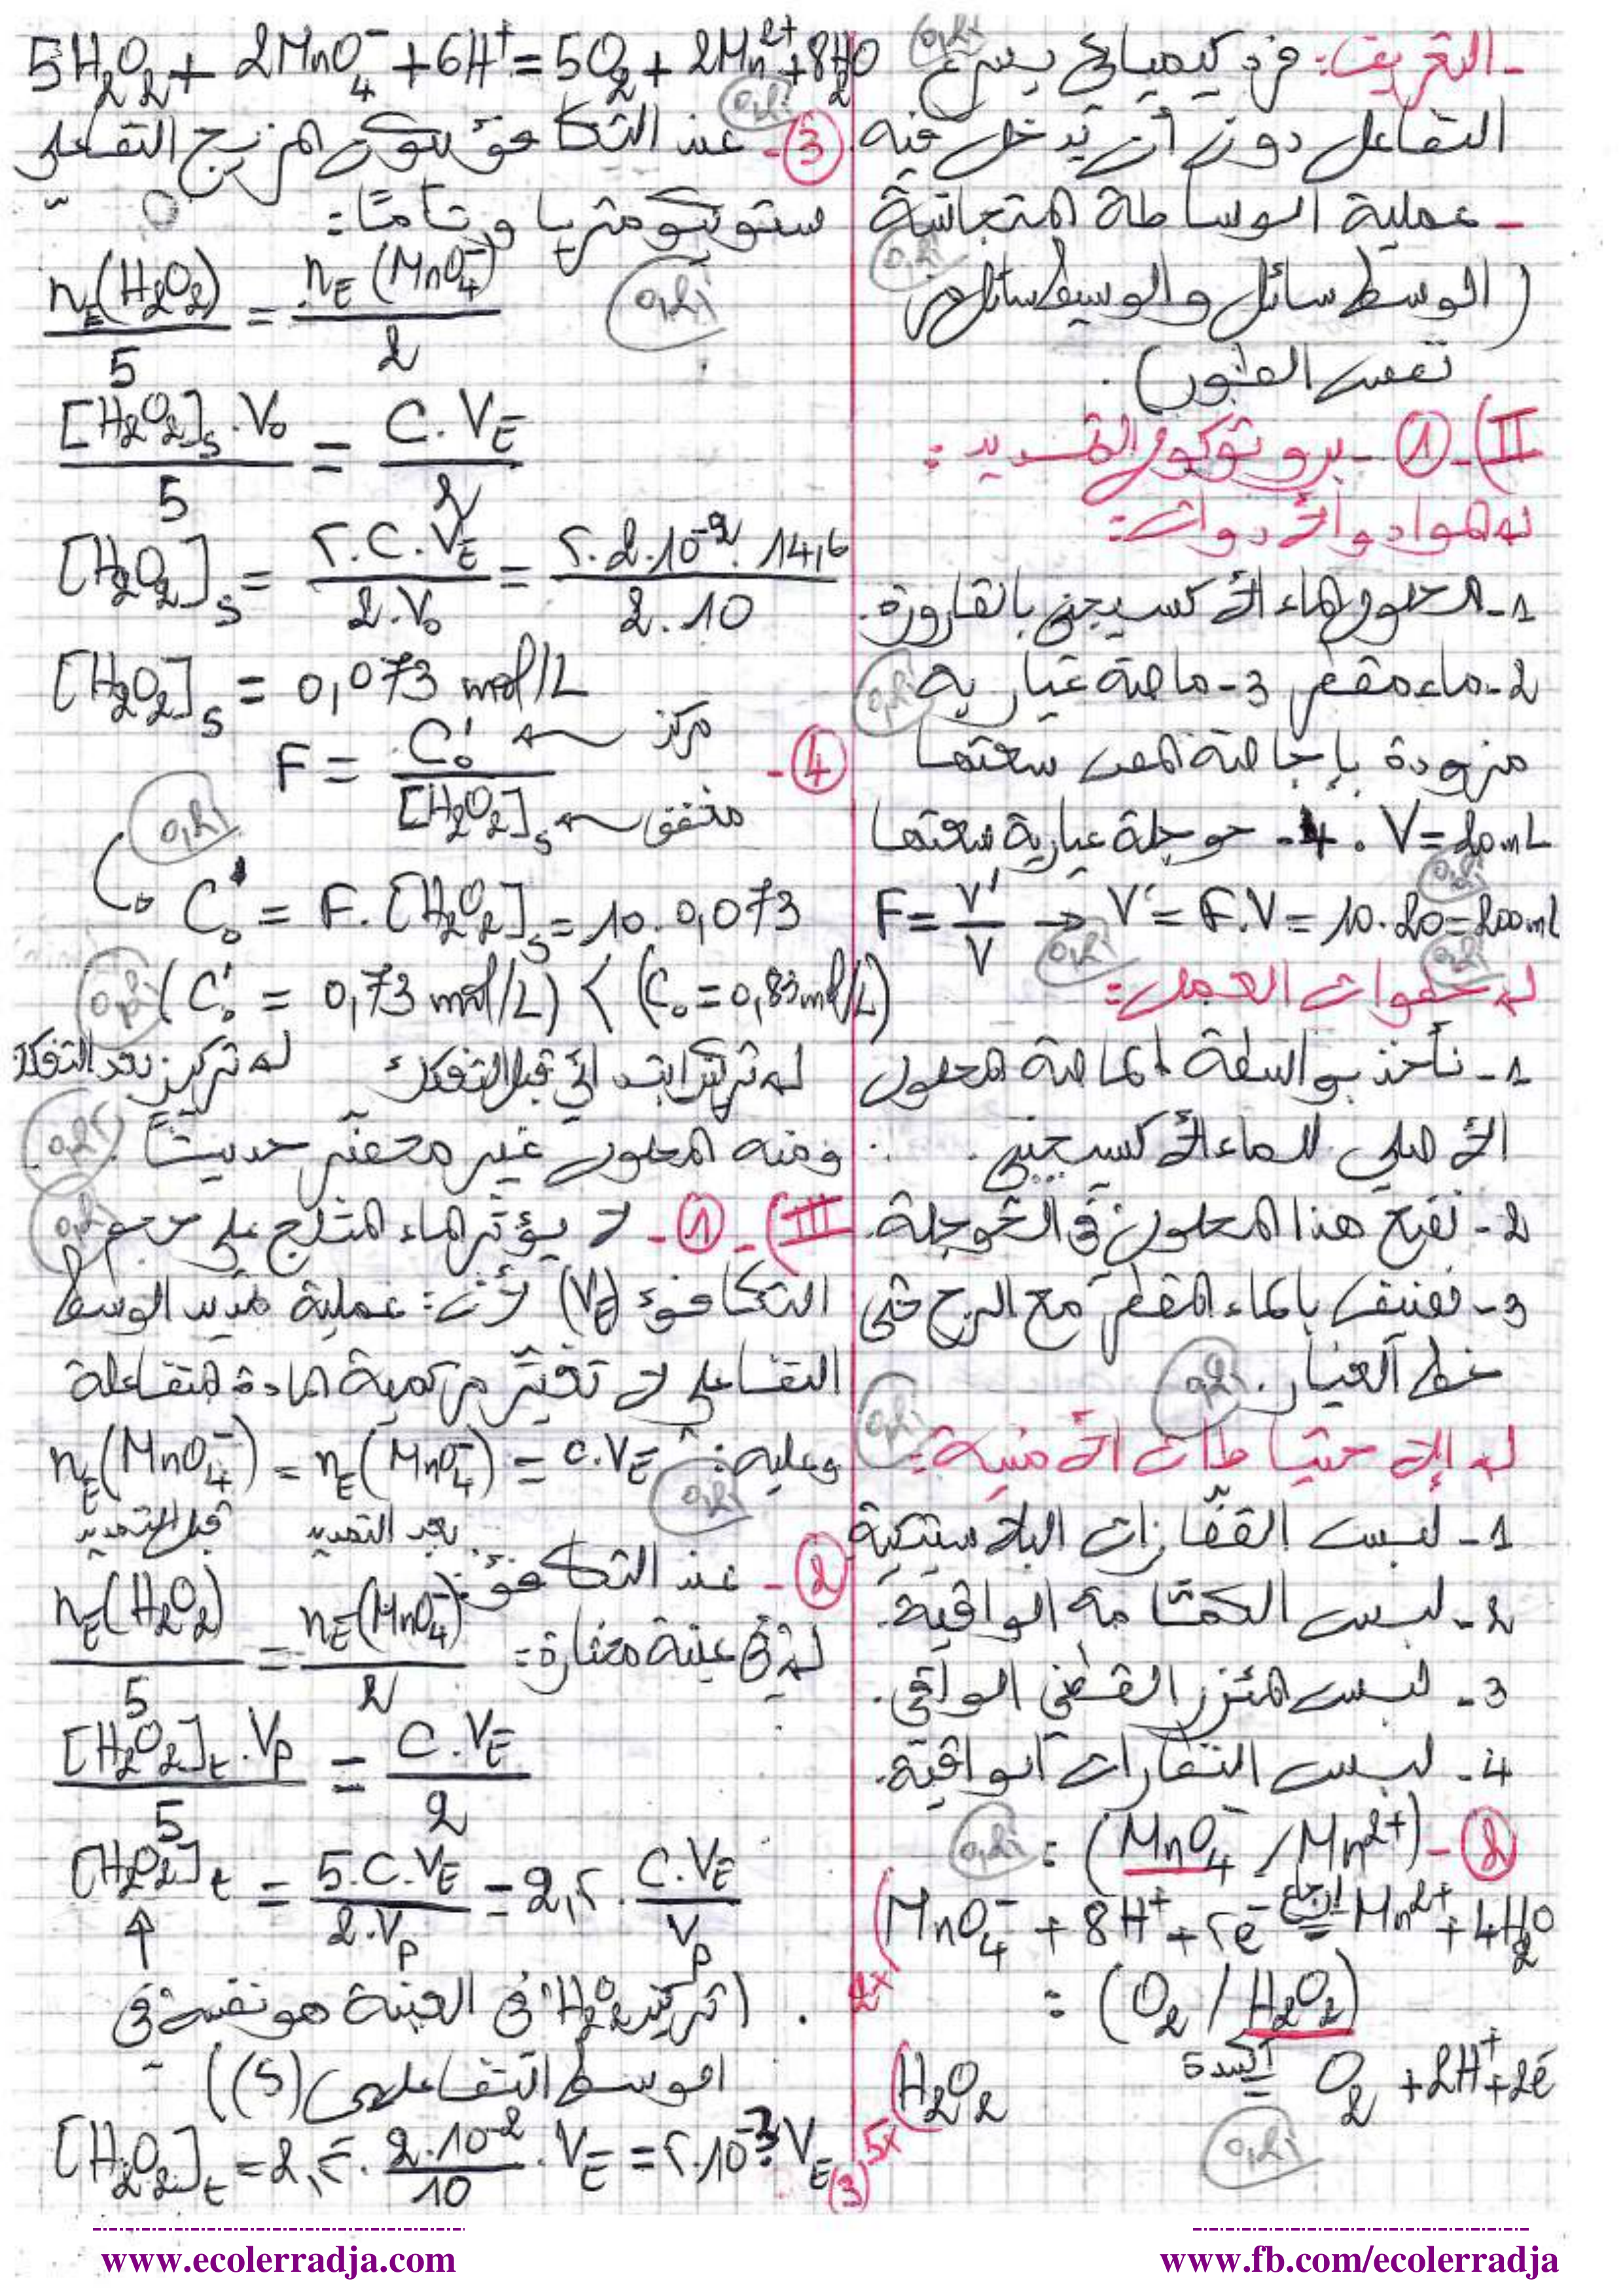 - التعريف: فرد كيميائي يسرع 0,25
التفاعل دون أن يدخل فيه
- عملية الوساطة المتجانسة 0,25
(الوسط سائل والوسيط سائل
نفس الطور).
II) - 1 - بروتوكول التمديد:
المواد والأدوات:
1- المحلول الماء الأكسيجيني بالقارورة.
2- ماء مقطر 3- ماصة عيارية 0,25
مزودة بإجاصة المص سعتها
V = 20 mL . 4- حوجلة عيارية سعتها
F = V'/V → V' = F.V = 10.20 = 200 mL
0,25 0,25 0,25
خطوات العمل:
1- نأخذ بواسطة الماصة المحلول
الأصلي للماء الأكسيجيني.
2- نضع هذا المحلول في الحوجلة.
3- نضيف بالماء المقطر مع الرج حتى
خط العيار. 0,25
الإحتياطات الأمنية: 0,25
1- لبس القفازات البلاستيكية
2- لبس الكمامة الواقية.
3- لبس المئزر القطني الواقي.
4- لبس النظارات الواقية.
2 - (MnO4⁻ / Mn²⁺) : 0,25
2x (MnO4⁻ + 8H⁺ + 5e⁻ =إرجاع Mn²⁺ + 4H2O
(O2 / H2O2) :
5x (H2O2 =أكسدة O2 + 2H⁺ + 2e⁻
0,25
(3)
5H2O2 + 2MnO4⁻ + 6H⁺ = 5O2 + 2Mn²⁺ + 8H2O
0,25
3 - عند التكافؤ يكون المزيج التفاعلي
ستوكيومتريا وتاما:
nE(H2O2)/5 = nE(MnO4⁻)/2 0,25
[H2O2]s.V0/5 = C.VE/2
[H2O2]s = 5.C.VE/2.V0 = 5.2.10⁻².14,6/2.10
[H2O2]s = 0,073 mol/L
4 - F = C'0/[H2O2]s ← مركز ← مخفف
0,25
C'0 = F.[H2O2]s = 10.0,073
(C'0 = 0,73 mol/L) < (C0 = 0,83 mol/L) 0,25
تركيز ابتدائي قبل التفكك تركيز بعد التفكك
ومنه المحلول غير محضر حديثا. 0,25
III) - 1 - لا يؤثر الماء المثلج على حجم 0,25
التكافؤ (VE) لأن: عملية تمديد الوسط
التفاعلي لا تغير من كمية المادة المتفاعلة
وعليه: nE(MnO4⁻) = nE(MnO4⁻) = C.VE
0,25
بعد التمديد قبل التمديد
2 - عند التكافؤ:
في عينة مختارة:
nE(H2O2)/5 = nE(MnO4⁻)/2
[H2O2]t.Vp/5 = C.VE/2
[H2O2]t = 5.C.VE/2.Vp = 2,5.C.VE/Vp
↑
(تركيز H2O2 في العينة هو نفسه في
الوسط التفاعلي (S))
[H2O2]t = 2,5.2.10⁻²/10.VE = 5.10⁻³.VE
www.ecolerradja.com
www.fb.com/ecolerradja